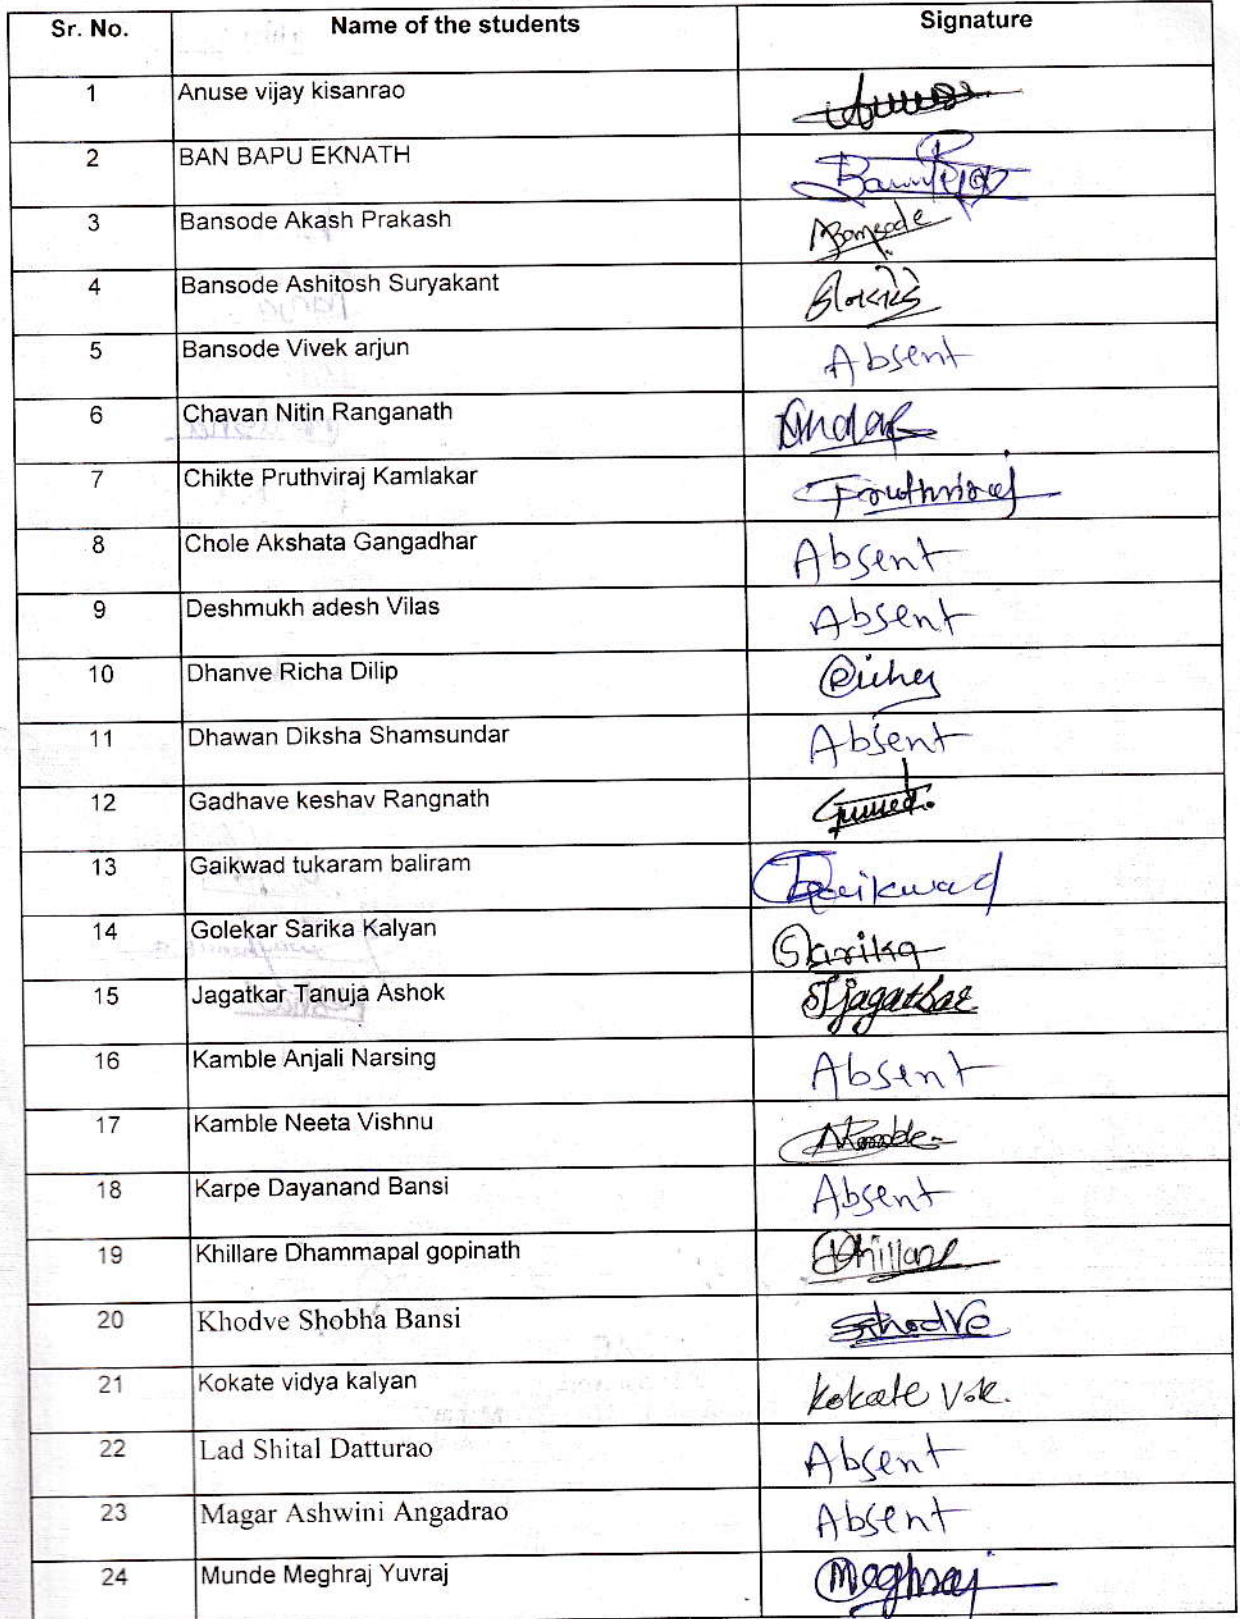 Sr. No. Name of the students Signature
1 Anuse vijay kisanrao
2 BAN BAPU EKNATH
3 Bansode Akash Prakash Bansode
4 Bansode Ashitosh Suryakant
5 Bansode Vivek arjun Absent
6 Chavan Nitin Ranganath
7 Chikte Pruthviraj Kamlakar Pruthviraj
8 Chole Akshata Gangadhar Absent
9 Deshmukh adesh Vilas Absent
10 Dhanve Richa Dilip
11 Dhawan Diksha Shamsundar Absent
12 Gadhave keshav Rangnath
13 Gaikwad tukaram baliram Gaikwad
14 Golekar Sarika Kalyan Sarika
15 Jagatkar Tanuja Ashok TJagatkar
16 Kamble Anjali Narsing Absent
17 Kamble Neeta Vishnu
18 Karpe Dayanand Bansi Absent
19 Khillare Dhammapal gopinath
20 Khodve Shobha Bansi
21 Kokate vidya kalyan Kokate V.k.
22 Lad Shital Datturao Absent
23 Magar Ashwini Angadrao Absent
24 Munde Meghraj Yuvraj Meghraj